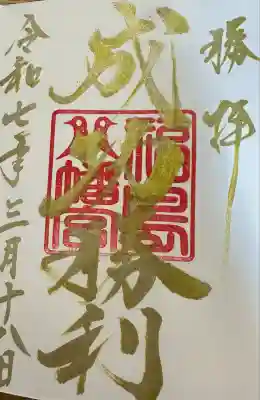 勝拝
成功勝利
福島
八幡宮
令和七年三月十八日